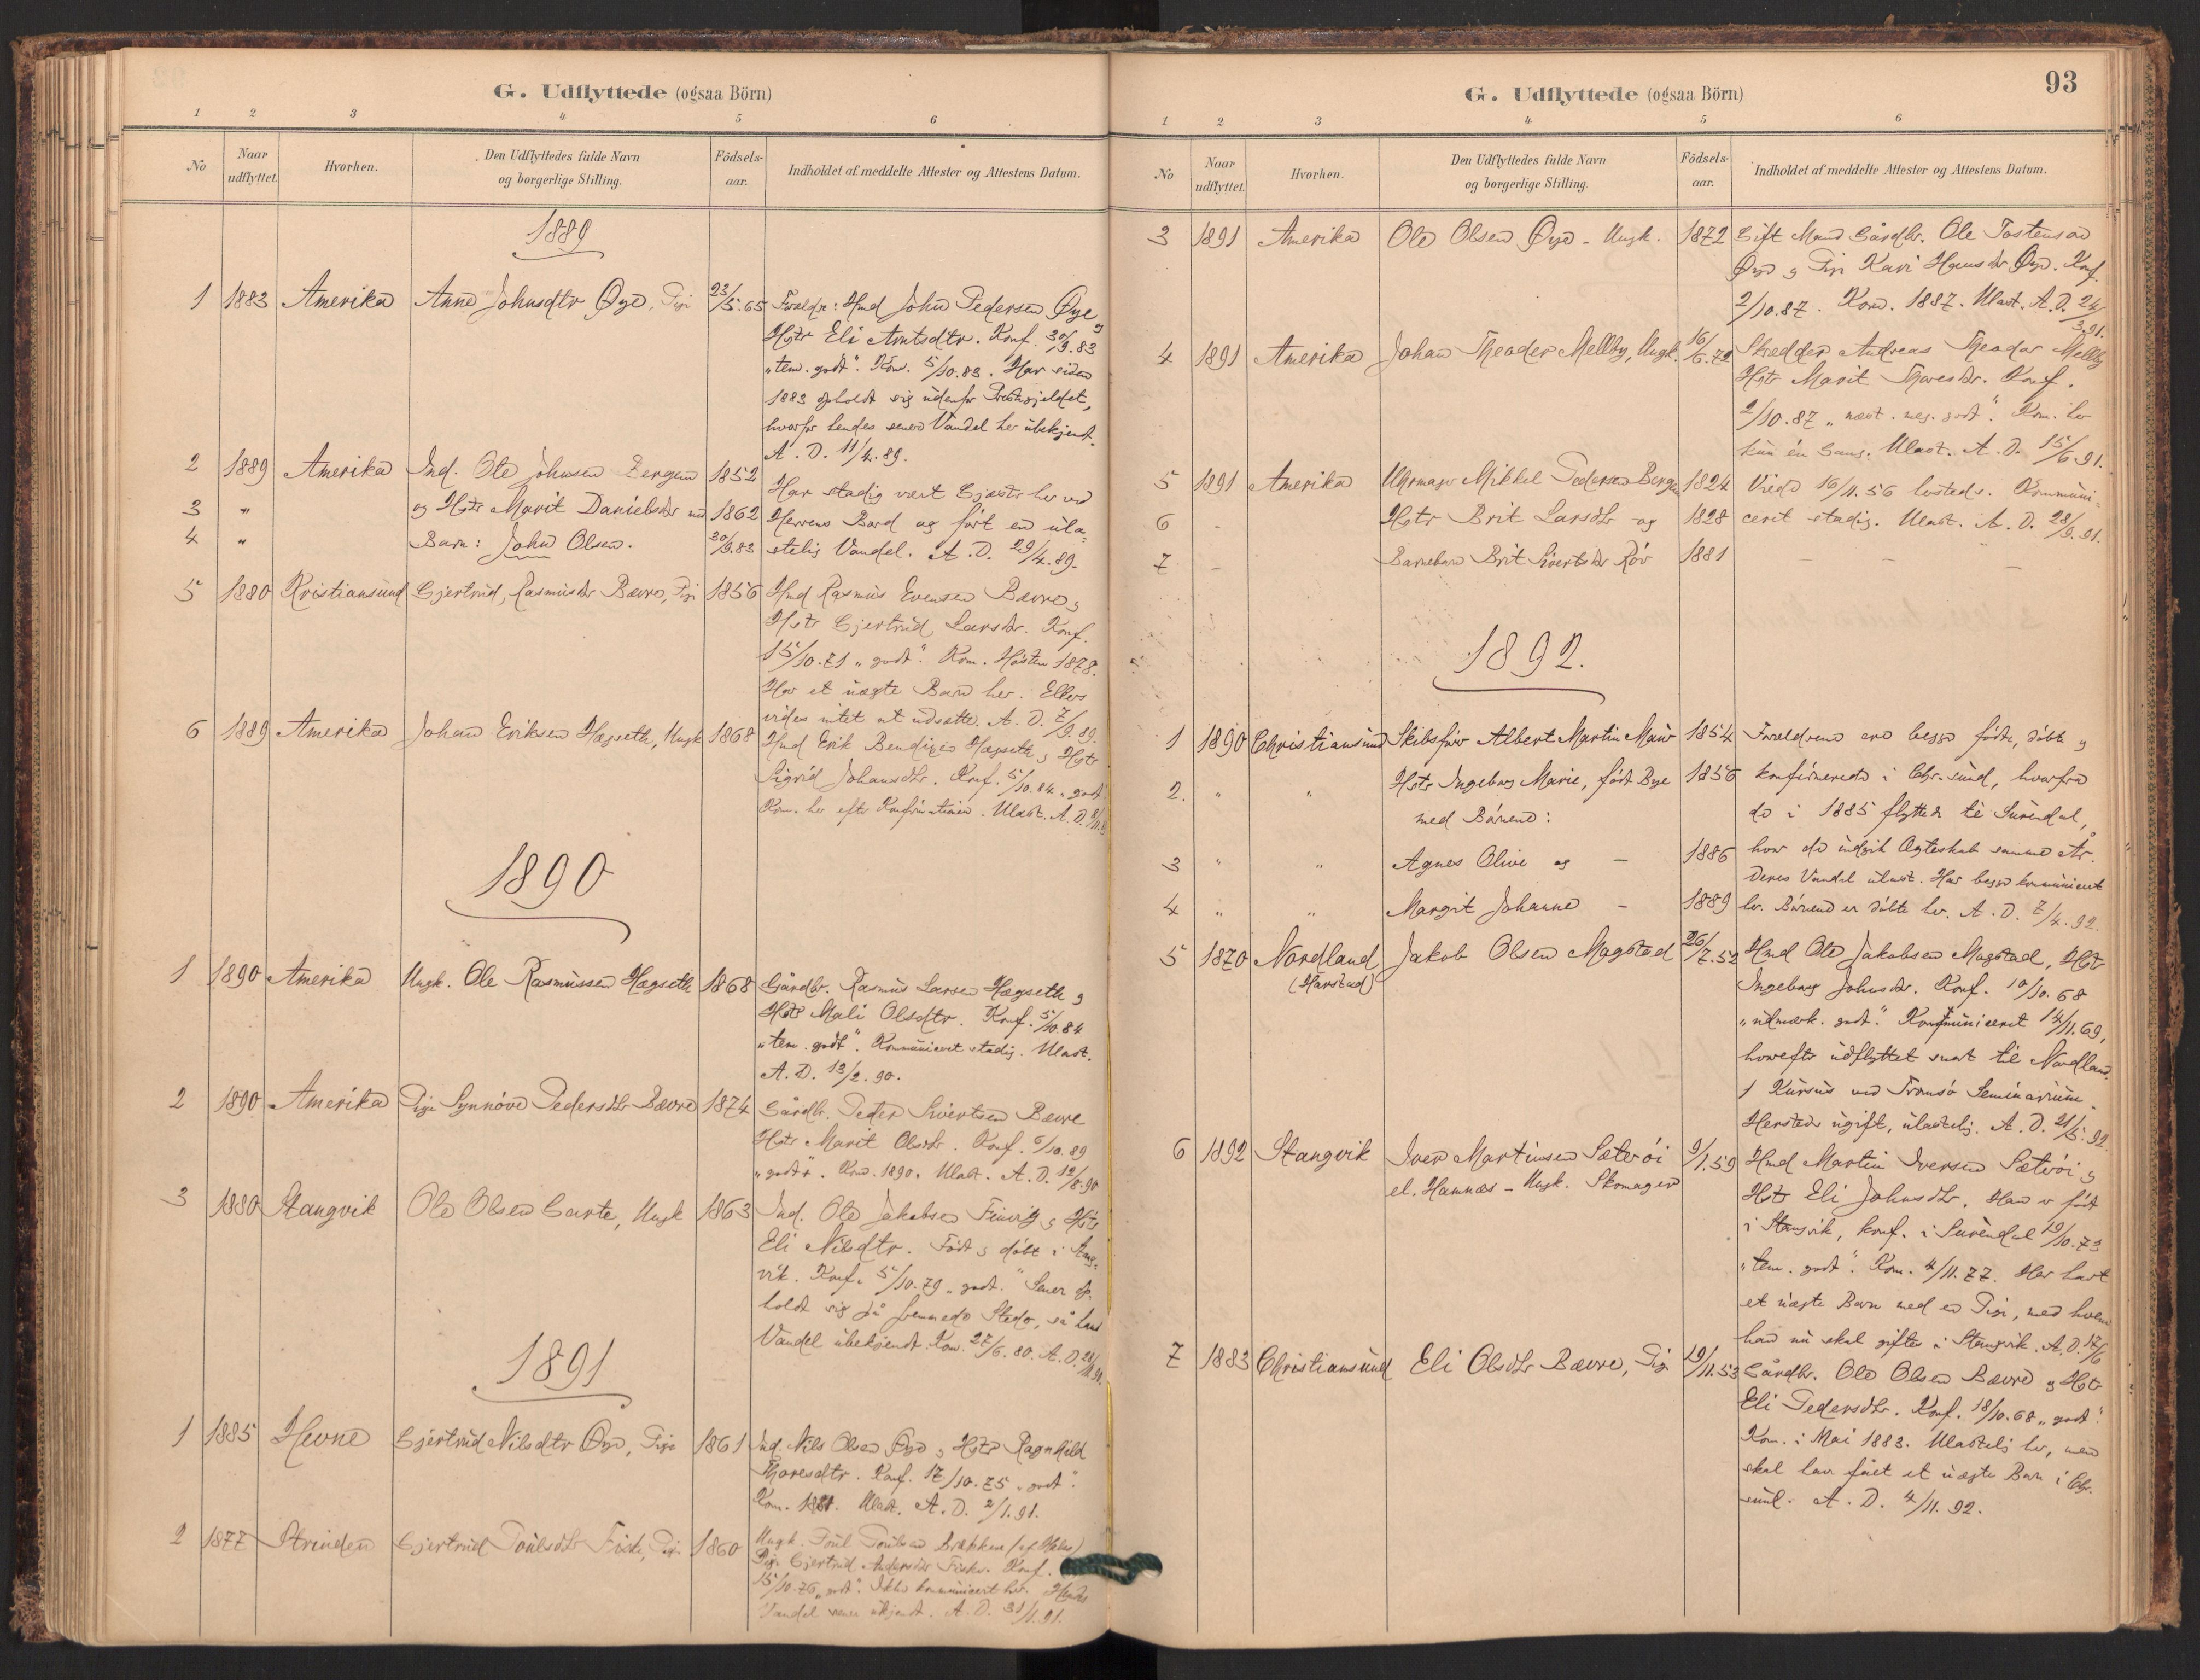 G. Udflyttede (ogsaa Börn)
1 2 3 4 5 6
No Naar udflyttet. Hvorhen. Den Udflyttedes fulde Navn og borgerlige Stilling. Födsels-aar. Indholdet af meddelte Attester og Attestens Datum.
1889
1 1883 Amerika Anne Johnsdtr Øye, Pige 23/5.65 Forældre: Hmd John Pedersen Øye og
Hstr Eli Arntsdtr. Konf. 30/9.83
"tem. godt". Kom. 5/10.83. Har siden
1883 opholdt sig udenfor Præstegjeldet,
hvorfor hendes senere Vandel her übekjendt.
A. D. 11/4.89.
2 1889 Amerika Ind. Ole Johnsen Bergem 1852 Har stadig vært Gjæster her ved
3 " og Hstr Marit Danielsdtr med 1862 Herrens Bord og ført en ula-
4 " Barn: John Olsen. 30/9.83 stelig Vandel. A. D. 29/4.89.
5 1880 Kristiansund Gjertrud Rasmusdtr Bævre, Pige 1856 Hmd Rasmus Evensen Bævre og
Hstr Gjertrud Larsdtr. Konf.
15/10.71 "godt". Kom. Høsten 1878.
Har et uægte Barn her. Ellers
vides intet at udsætte. A. D. 7/9.89.
6 1889 Amerika Johan Eriksen Hægseth, Ungk 1868 Hmd Erik Hægseth og Hstr
Sigrid Johansdtr. Konf. 5/10.84 "godt"
Kom. her efter Konfirmationen. Ulast. A. D.
1890
1 1890 Amerika Ungk. Ole Rasmussen Hægseth 1868 Gårdbr. Rasmus Larsen Hægseth og
Hstr Mali Olsdtr. Konf. 5/10.84
"tem. godt". Kommuniceret stadig. Ulast.
A. D. 13/2.90.
2 1890 Amerika Pige Synnøve Pedersdtr Bævre 1874 Gårdbr. Peder Sivertsen Bævre
Hstr Marit Olsdtr. Konf. 6/10.89
"godt". Kom. 1890. Ulast. A. D. 12/8.90
3 1880 Stangvik Ole Olsen Garte, Ungk 1863 Ind. Ole Jakobsen og Hstr
Eli Nilsdtr. Født og døbt i Stang-
vik. Konf. 5/10.79 "godt." Senere op-
holdt sig på fremmede Steder, så hans
Vandel übekjendt. Kom. 27/6.80. A. D.
1891
1 1885 Hevne Gjertrud Nilsdtr Øye, Pige 1861 Ind. Nils Olsen Øye og Hstr Ragnhild
Thoresdtr. Konf. 17/10.75 "godt".
Kom. 1881. Ulast. A. D. 2/1.91.
2 1877 Strinden Gjertrud Poulsdtr Fiske, Pige 1860 Ungk. Poul Poulsen Brækken
Pige Gjertrud Andersdtr Fiske. Konf.
15/10.76 "godt". Ikke kommuniceret her. Hendes
Vandel senere ukjendt. A. D. 31/1.91.
93
G. Udflyttede (ogsaa Börn)
1 2 3 4 5 6
No Naar udflyttet. Hvorhen. Den Udflyttedes fulde Navn og borgerlige Stilling. Födsels-aar. Indholdet af meddelte Attester og Attestens Datum.
3 1891 Amerika Ole Olsen Øye - Ungk. 1872 Gift Mand Gårdbr. Ole Tostensen
Øye og Pige Kari Hansdtr Øye. Konf.
2/10.87. Kom. 1887. Ulast. A. D. 24/3.91.
4 1891 Amerika Johan Theodor Mellby, Ungk. 16/6.72 Skrædder Andreas Theodor Mellby
Hstr Marit Thoresdtr. Konf.
2/10.87 "næst. meg. godt". Kom. her
kun én Gang. Ulast. A. D. 15/6.91.
5 1891 Amerika Uhrmager Mikkel Pedersen Bergem 1824 Viede 16/11.56 herstedr. Kommuni-
6 - Hstr Brit Larsdtr og 1828 cerit stadig. Ulast. A. D. 28/9.91.
7 - Barnebarn Brit Sivertsdtr Röv 1881 - - -
1892.
1 1890 Christiansund Skibsfører Albert Martin 1854 Forældrene ere begge fødte, døbte og
2. " " Hstr Ingeborg Marie, født Bye 1856 konfirmerede i Chr.sund, hvorfra
med Børnene: de i 1885 flyttede til Surendal,
3 " " Agnes Olive og - 1886 hvor de indgik Ægteskab samme År.
Deres Vandel ulast. Har begge kommuniceret
4 " " Margit Johanne - 1889 her. Børnene er døbte her. A. D. 7/4.92.
5 1870 Nordland Jakob Olsen Magstad 26/7.52 Hmd Ole Jakobsen Magstad, Hstr
(Harstad) Ingeborg Johnsdtr. Konf. 10/10.68
"udmærk. godt". Kommuniceret 14/11.69,
hvorefter udflyttet snart til Nordland.
1 Kursus ved Tromsø Seminarium.
Herstedr ugift, ulastelig. A. D. 21/5.92
6 1892 Stangvik Iver Martinsen Sætrøi 9/1.59 Hmd Martin Iversen Sætrøi og
el. Hamnæs - Ungk. Skomager Hstr Eli Johnsdtr. Han er født
i Stangvik, konf. i Surendal 19/10.73
"tem. godt". Kom. 4/11.77. Har havt
et uægte Barn med en Pige, med hvem
han nu skal giftes i Stangvik. A. D. 17/6
7 1883 Christiansund Eli Olsdtr Bævre, Pige 19/11.53 Gårdbr. Ole Olsen Bævre og Hstr
Eli Pedersdtr. Konf. 18/10.68 "godt".
Kom. i Mai 1883. Ulastelig her, men
skal have fået et uægte Barn i Chr.
sund. A. D. 4/11.92.